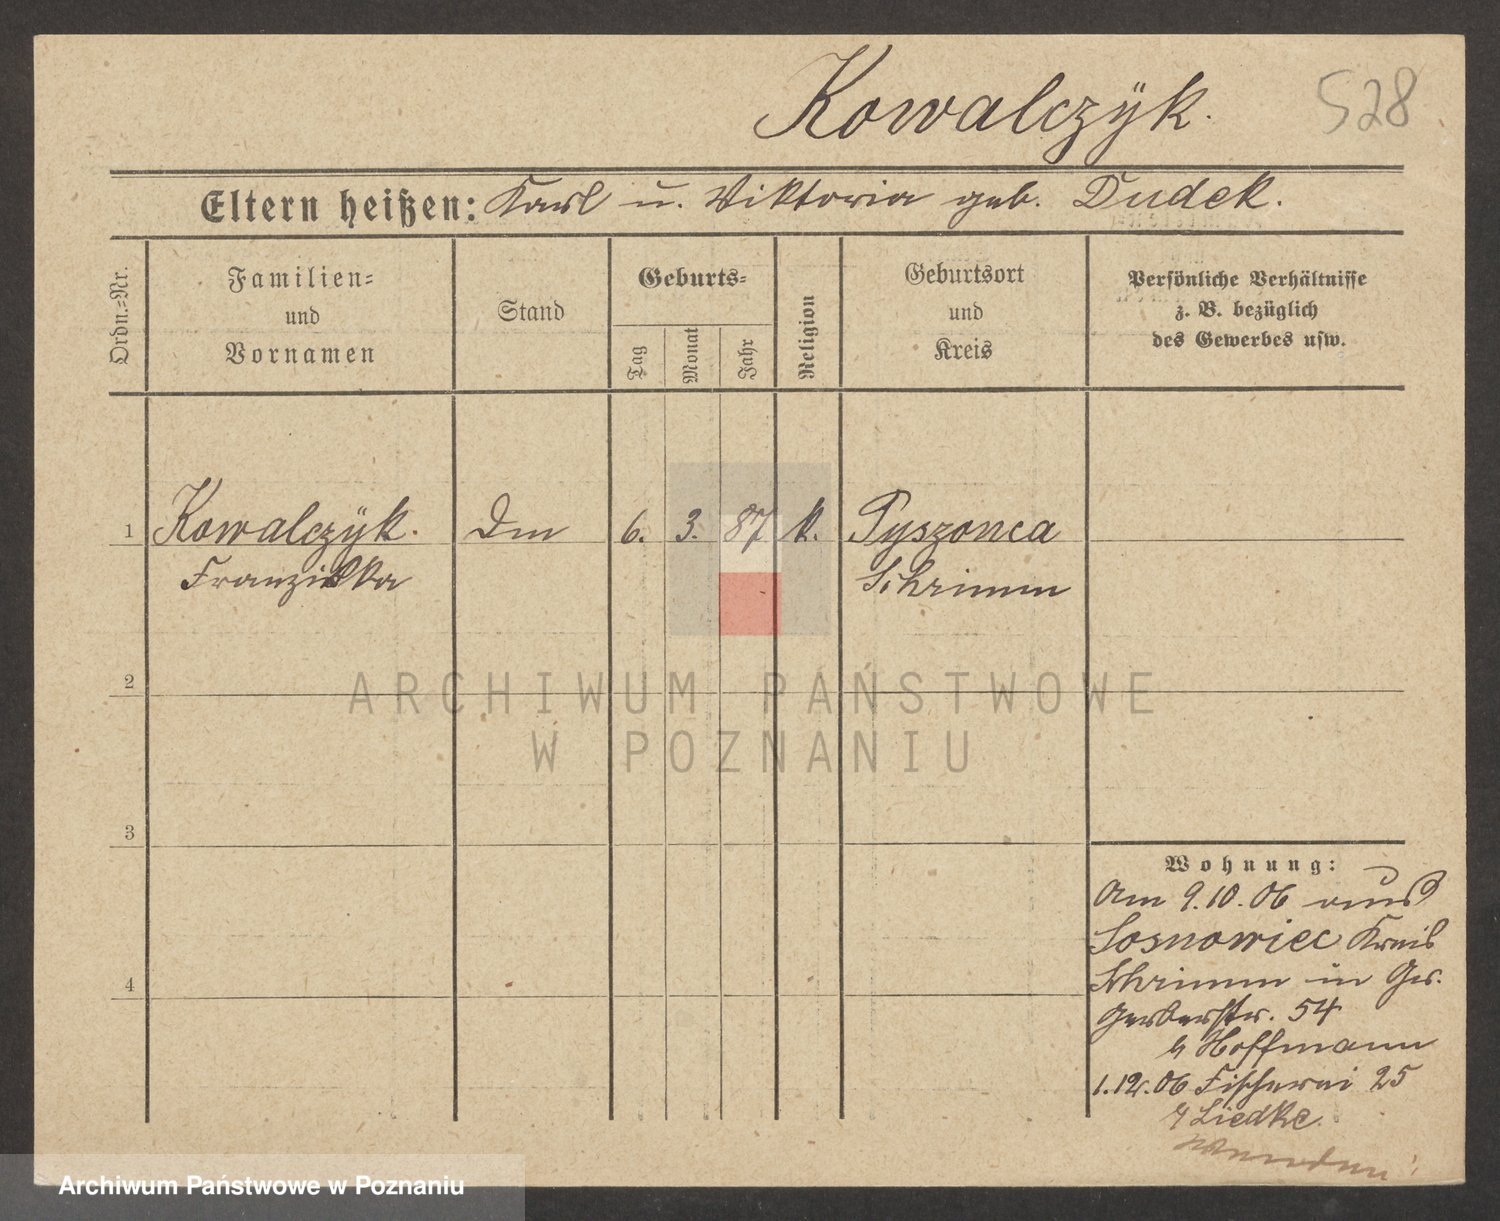 Kowalczÿk. 528
Eltern heißen: Karl u. Viktoria geb. Dudek.
Ordn.-Nr.
Familien-
und
Vornamen
Stand
Geburts-
Tag
Monat
Jahr
Religion
Geburtsort
und
Kreis
Persönliche Verhältnisse
z. B. bezüglich
des Gewerbes usw.
1 Kowalczÿk. 6. 3. 87 k. Pyszonca
Franziska Schrimm
2
ARCHIWUM PAŃSTWOWE
W POZNANIU
3
Wohnung:
Am 9.10.06 aus
Sosnowiec Kreis
Schrimm in
Gerberstr. 54
Hoffmann
1.12.06 Fischerei 25
Liedke.
4
Archiwum Państwowe w Poznaniu